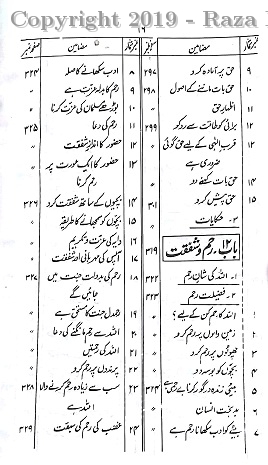 Copyright 2019 - Raza
۱۶
نمبر شمار مضامین صفحہ نمبر
۹ حق پر آمادہ کرو ۲۹۷
۱۰ حق بات ماننے کے اصول
۱۱ اظہارِ حق "
۱۲ برائی کو طاقت سے روکو ۲۹۹
۱۳ قرب الٰہی کے لیے حق گوئی "
ضروری ہے
۱۴ حق بات کہنے دو "
۱۵ حق پیش کرو ۳۰۱
۳۔ حکایات "
باب ۱۲۔ رحم و شفقت ۳۱۹
۱۔ اللہ کی شانِ رحم ۳۲۲
۲۔ فضیلت رحم ۳۲۳
۱ اللہ کا رحم کن کے لیے؟ "
۲ زمین والوں پر رحم کرو "
۳ چھوٹوں پر رحم کرو "
۴ بچوں کو بوسہ دو "
۵ بیٹی زندہ درگور کرنا بے رحمی ہے ۳۲۴
۶ بدبخت انسان "
۷ بیٹے کو ادب سکھانا رحم ہے "
نمبر شمار مضامین صفحہ نمبر
۸ ادب سکھانے کا صلہ ۳۲۴
۹ رحم کا بدلہ عزت ہے "
۱۰ بوڑھے مسلمان کی عزت کرنا "
۱۱ رحم کی دعا ۳۲۵
۱۲ حضور کا انداز شفقت "
۱۳ حضور کا ایک عورت پر "
رحم کرنا
۱۴ بچوں کے ساتھ شفقت کرو ۳۲۶
۱۵ بچوں کو سمجھانے کا طریقہ "
۱۶ دایہ کی عزت و تکریم "
۱۷ آپس کی مہربانی اور شفقت "
۱۸ رحم کی بدولت جنت میں ۳۲۷
جائیں گے
۱۹ رحمدل جنت کا مستحق ہے "
۲۰ اللہ سے رحم مانگنے کی دعا "
۲۱ اللہ کی رحمتیں "
۲۲ پرندوں پر رحم کرو "
۲۳ سب سے زیادہ رحم کرنے والا ۳۲۸
اللہ ہے
۲۴ غضب کی رحم کی سبقت ۳۲۹